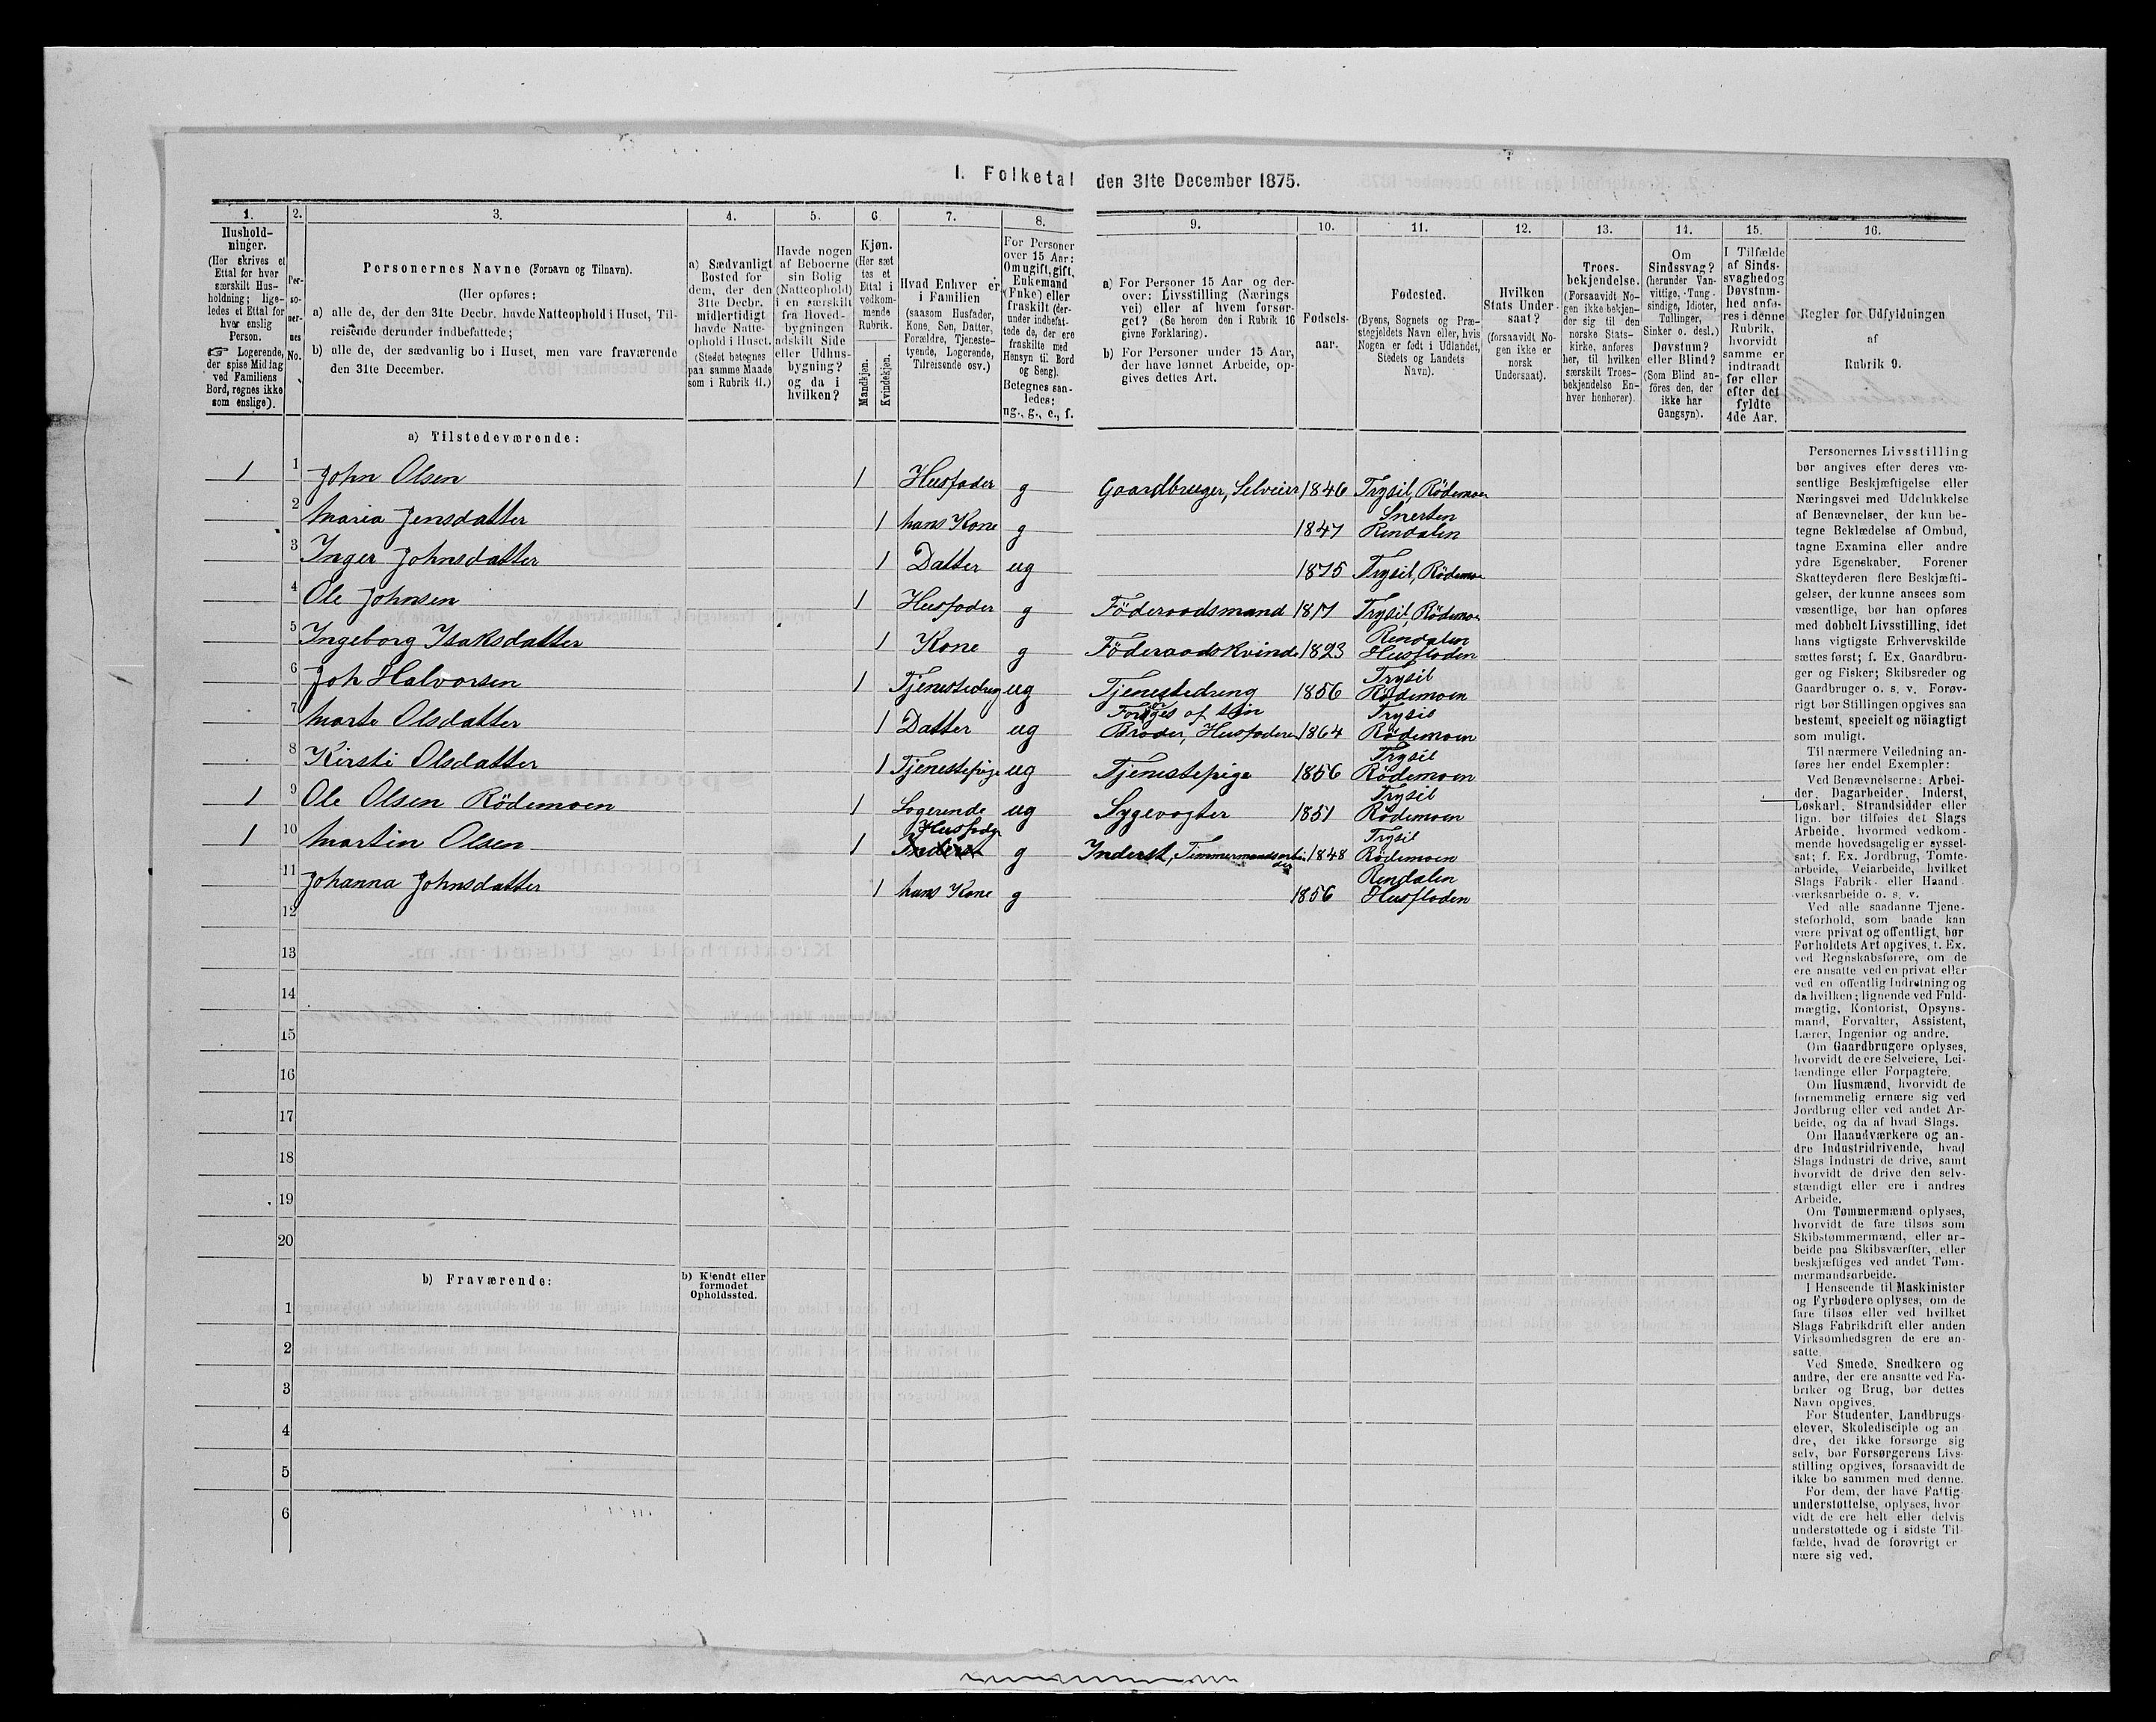 I. Folketal den 31te December 1875.
1. 2. 3. 4. 5. 6. 7. 8. 9. 10. 11. 12. 13. 14. 15. 16.
Hushold-
ninger.
(Her skrives et
Ettal for hver
særskilt Hus-
holdning; lige-
ledes et Ettal for
hver enslig
Person.
☞ Logerende,
der spise Middag
ved Familiens
Bord, regnes ikke
som enslige).
Per-
so-
ner-
nes
No.
Personernes Navne (Fornavn og Tilnavn).
(Her opføres:
a) alle de, der den 31te Decbr. havde Natteophold i Huset, Til-
reisende derunder indbefattede;
b) alle de, der sædvanlig bo i Huset, men vare fraværende
den 31te December.
a) Sædvanligt
Bosted for
dem, der den
31te Decbr.
midlertidigt
havde Natte-
ophold i Huset.
(Stedet betegnes
paa samme Maade
som i Rubrik 11.)
Havde nogen
af Beboerne
sin Bolig
(Natteophold)
i en særskilt
fra Hoved-
bygningen
adskilt Side
eller Udhus-
bygning?
og da i
hvilken?
Kjøn.
(Her sæt
tes et
Ettal i
vedkom-
mende
Rubrik.
Mandkjøn.
Kvindekjøn.
Hvad Enhver er
i Familien
(saasom Husfader,
Kone, Søn, Datter,
Forældre, Tjeneste-
tyende, Logerende,
Tilreisende osv.)
For Personer
over 15 Aar:
Om ugift, gift,
Enkemand
(Enke) eller
fraskilt (der-
under indbefat-
tede de, der ere
fraskilte med
Hensyn til Bord
og Seng).
Betegnes saa-
ledes:
ug., g., e., f.
a) For Personer 15 Aar og der-
over: Livsstilling (Nærings
vei) eller af hvem forsør-
get? (Se herom den i Rubrik 16
givne Forklaring).
b) For Personer under 15 Aar,
der have lønnet Arbeide, op-
gives dettes Art.
Fødsels-
aar.
Fødested.
(Byens, Sognets og Præ-
stegjeldets Navn eller, hvis
Nogen er født i Udlandet,
Stedets og Landets
Navn).
Hvilken
Stats Under-
saat?
(forsaavidt No-
gen ikke er
norsk
Undersaat).
Troes-
bekjendelse.
(Forsaavidt No-
gen ikke bekjen-
der sig til den
norske Stats-
kirke, anføres
her, til hvilken
særskilt Troes-
bekjendelse En-
hver henhører).
Om
Sindssvag?
(herunder Van-
vittige, Tung-
sindige, Idioter,
Tullinger,
Sinker o. desl.)
Døvstum?
eller Blind?
(Som Blind an-
føres den, der
ikke har
Gangsyn).
I Tilfælde
af Sinds-
svaghed og
Døvstum-
hed anfø-
res i denne
Rubrik,
hvorvidt
samme er
indtraadt
før eller
efter det
fyldte
4de Aar.
Regler for Udfyldningen
af
Rubrik 9.
a) Tilstedeværende:
1 1 John Olsen 1 Husfader g Gaardbruger, Selveier 1846 Trysil, Rödemoen
2 Maria Jensdatter 1 hans Kone g 1847 Snerten Rendalen
3 Inger Johnsdatter 1 Datter ug 1875 Trysil, Rödemoen
4 Ole Johnsen 1 Husfader g Föderaadsmand 1817 Trysil, Rödemoen
5 Ingeborg Isaksdatter 1 Kone g Föderaadskvinde 1823 Rendalen Husfloden
6 Joh Halvorsen 1 Tjenestedreng ug Tjenestedreng 1856 Trysil Rödemoen
7 Marte Olsdatter 1 Datter ug Forsørges af sin Broder, Husfaderen 1864 Trysil Rödemoen
8 Kirsti Olsdatter 1 Tjenestepige ug Tjenestepige 1856 Trysil Rödemoen
1 9 Ole Olsen Rödemoen 1 Logerende ug Sygevogter 1851 Trysil Rödemoen
1 10 Martin Olsen 1 Husfader Inderst g Inderst, Tømmermandsarbeider 1848 Trysil Rödemoen
11 Johanna Johnsdatter 1 hans Kone g 1856 Rendalen Husfloden
12
13
14
15
16
17
18
19
20
b) Fraværende:
b) Kjendt eller
formodet
Opholdssted.
1
2
3
4
5
6
Personernes Livsstilling
bør angives efter deres væ-
sentlige Beskjæftigelse eller
Næringsvei med Udelukkelse
af Benævnelser, der kun be-
tegne Beklædelse af Ombud,
tagne Examina eller andre
ydre Egenskaber. Forener
Skatteyderen flere Beskjæfti-
gelser, der kunne ansees som
væsentlige, bør han opføres
med dobbelt Livsstilling, idet
hans vigtigste Erhvervskilde
sættes først; f. Ex. Gaardbru-
ger og Fisker; Skibsreder og
Gaardbruger o. s. v. Forøv-
rigt bør Stillingen opgives saa
bestemt, specielt og nöiagtigt
som muligt.
Til nærmere Veiledning an-
føres her endel Exempler:
Ved Benævnelserne: Arbei-
der, Dagarbeider, Inderst,
Løskarl, Strandsidder eller
lign. bør tilføies det Slags
Arbeide, hvormed vedkom-
mende hovedsagelig er syssel-
sat; f. Ex. Jordbrug, Tomte-
arbeide, Veiarbeide, hvilket
Slags Fabrik- eller Haand-
værksarbeide o. s. v.
Ved alle saadanne Tjene-
steforhold, som baade kan
være privat og offentligt, bør
Forholdets Art opgives, f. Ex.
ved Regnskabsførere, om de
ere ansatte ved en privat eller
ved en offentlig Indretning og
da hvilken; lignende ved Fuld-
mægtig, Kontorist, Opsyns-
mand, Forvalter, Assistent,
Lærer, Ingeniør og andre.
Om Gaardbrugere oplyses,
hvorvidt de ere Selveiere, Lei-
lændinge eller Forpagtere.
Om Husmænd, hvorvidt de
fornemmelig ernære sig ved
Jordbrug eller ved andet Ar-
beide, og da af hvad Slags.
Om Haandværkere og an-
dre Industridrivende, hvad
Slags Industri de drive, samt
hvorvidt de drive den selv-
stændigt eller ere i andres
Arbeide.
Om Tømmermænd oplyses,
hvorvidt de fare tilsøs som
Skibstømmermænd, eller ar-
beide paa Skibsværfter, eller
beskjæftiges ved andet Tøm-
mermandsarbeide.
I Henseende til Maskinister
og Fyrbødere oplyses, om de
fare tilsøs eller ved hvilket
Slags Fabrikdrift eller anden
Virksomhedsgren de ere an-
satte.
Ved Smede, Snedkere og
andre, der ere ansatte ved Fa-
briker og Brug, bør dettes
Navn opgives.
For Studenter, Landbrugs-
elever, Skoledisciple og an
dre, der ikke forsørge sig
selv, bør Forsørgerens Livs-
stilling opgives, forsaavidt de
ikke bo sammen med denne.
For dem, der have Fattig-
understøttelse, oplyses, hvor
vidt de ere helt eller delvis
understøttede og i sidste Til-
fælde, hvad de forøvrigt er
nære sig ved.